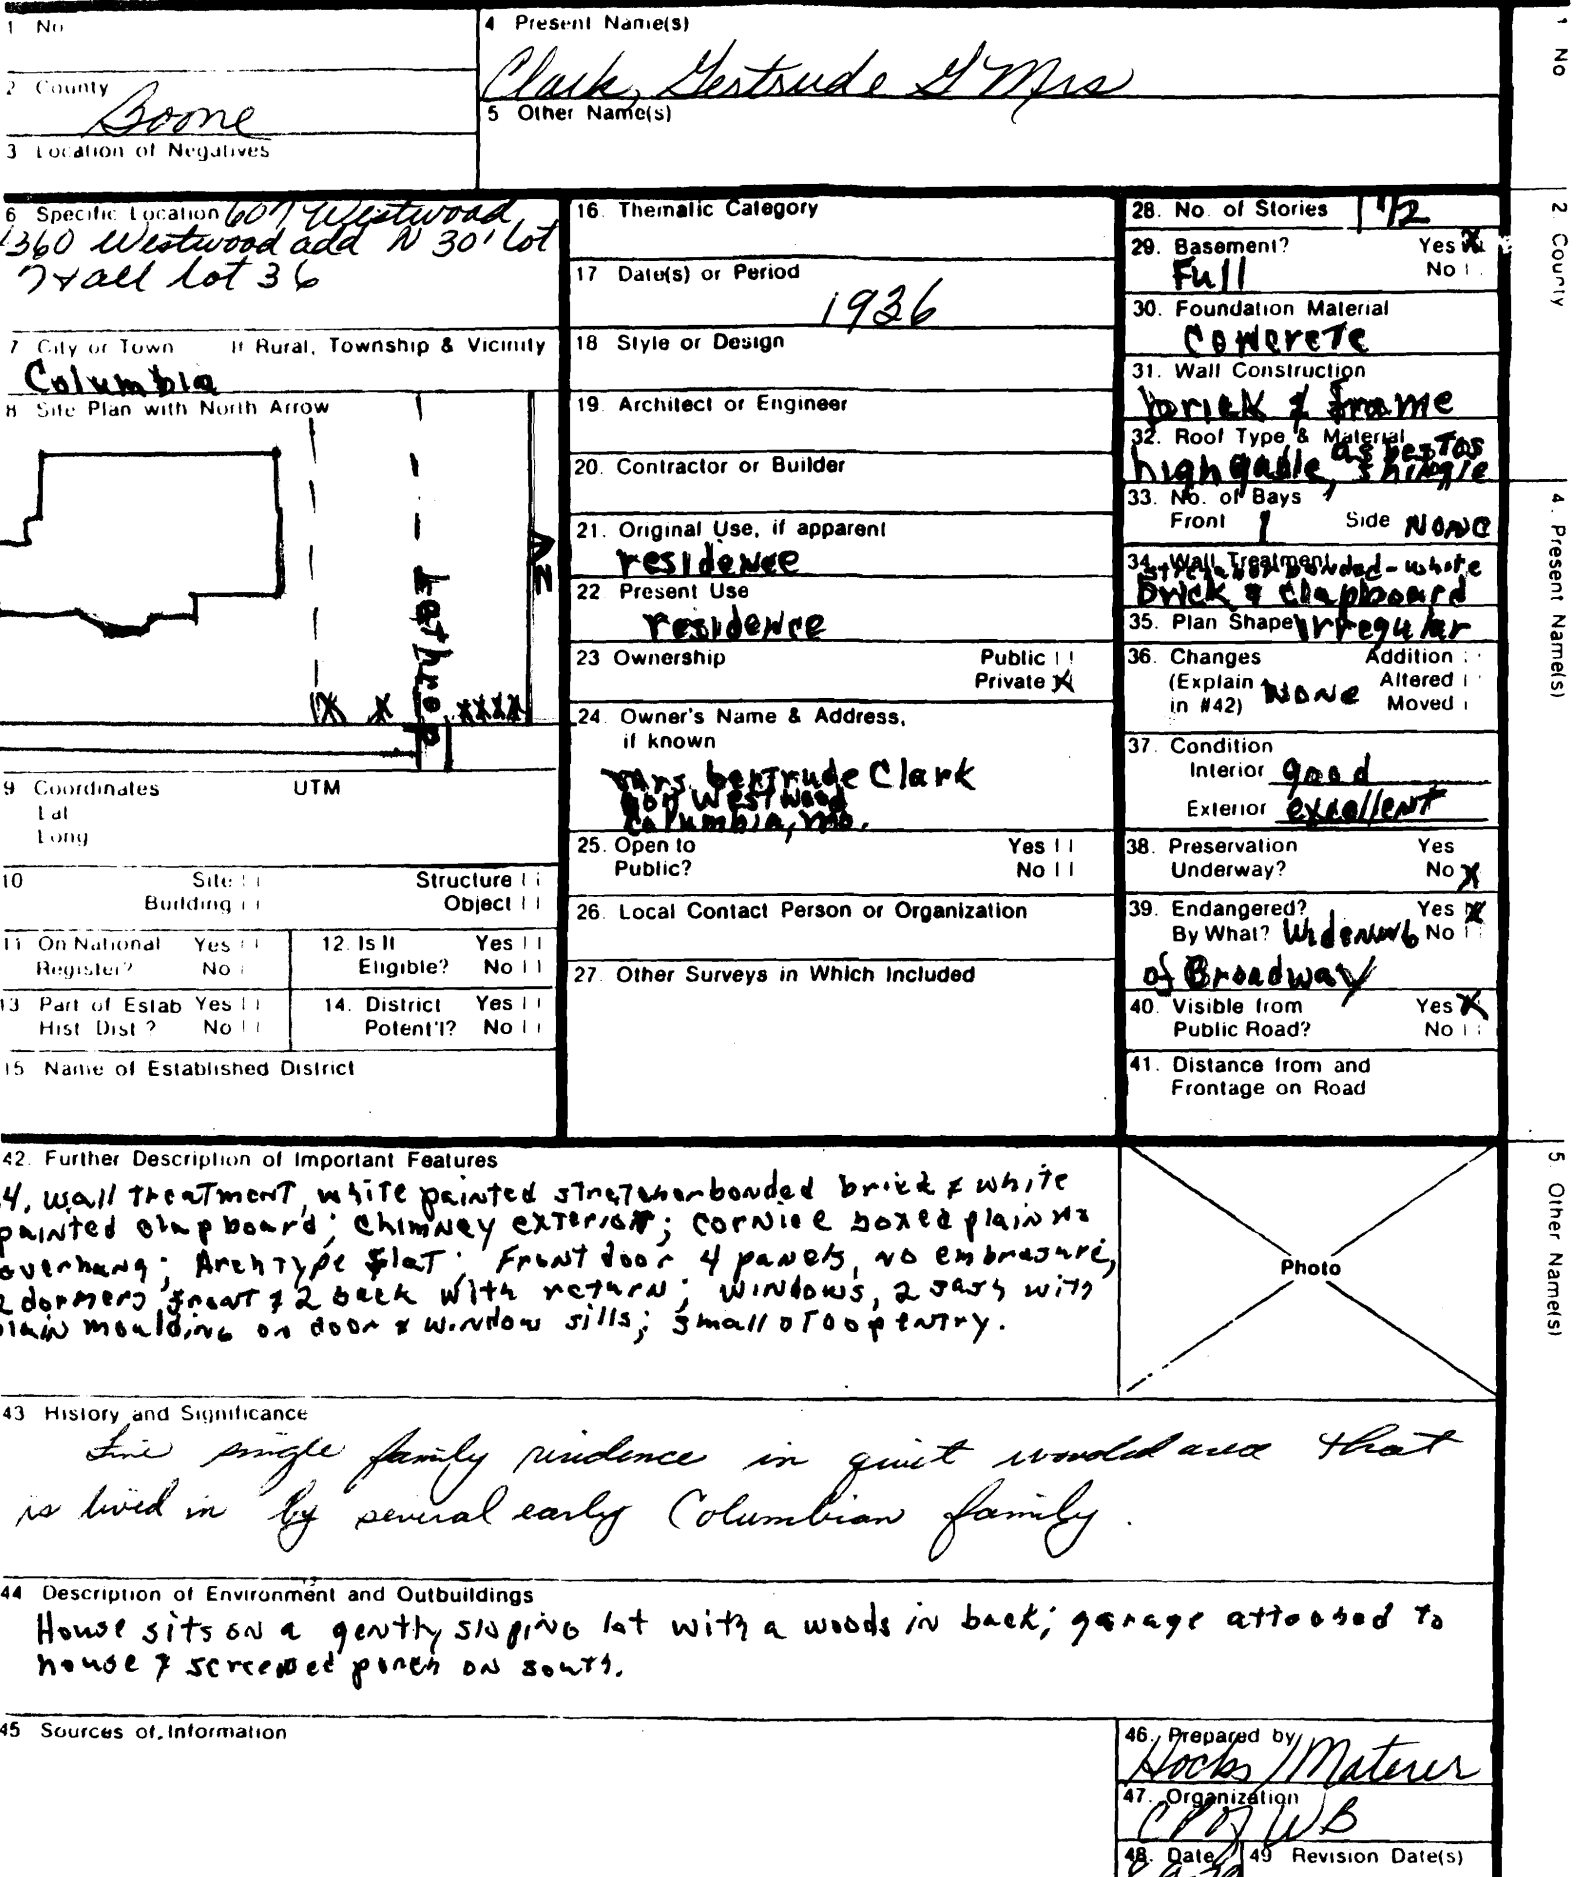 1 No
4 Present Name(s)
Clark, Gertrude G Mrs
2 County
Boone
5 Other Name(s)
3 Location of Negatives
6 Specific Location 607 Westwood
1360 Westwood add N 30' lot
7 & all lot 36
7 City or Town If Rural, Township & Vicinity
Columbia
8 Site Plan with North Arrow
Lathrop
N
9 Coordinates UTM
Lat
Long
10 Site Structure
Building Object
11 On National Register? Yes No
12. Is It Eligible? Yes No
13 Part of Estab Hist Dist? Yes No
14. District Potent'l? Yes No
15 Name of Established District
16. Thematic Category
17 Date(s) or Period
1936
18 Style or Design
19. Architect or Engineer
20. Contractor or Builder
21. Original Use, if apparent
residence
22. Present Use
residence
23 Ownership Public
Private X
24. Owner's Name & Address,
if known
Mrs. Gertrude Clark
607 Westwood
Columbia, Mo.
25. Open to Yes
Public? No
26. Local Contact Person or Organization
27. Other Surveys in Which Included
28. No. of Stories 1 1/2
29. Basement? Yes X
Full No
30. Foundation Material
concrete
31. Wall Construction
brick & frame
32. Roof Type & Material asbestos
high gable, shingle
33. No. of Bays
Front 1 Side None
34. Wall Treatment
stretcher bonded - white
brick & clapboard
35. Plan Shape irregular
36. Changes Addition
(Explain None Altered
in #42) Moved
37. Condition
Interior good
Exterior excellent
38. Preservation Yes
Underway? No X
39. Endangered? Yes X
By What? Widening No
of Broadway
40. Visible from Yes X
Public Road? No
41. Distance from and
Frontage on Road
42. Further Description of Important Features
4, wall treatment, white painted stretcher bonded brick & white
painted clapboard; chimney exterior; cornice boxed plain no
overhang; Arch type flat; Front door 4 panels, no embrasure,
2 dormers front & 2 back with return; windows, 2 sash with
plain moulding on door & window sills; small stoop entry.
Photo
43 History and Significance
Fine single family residence in quiet wooded area that
is lived in by several early Columbian family.
44 Description of Environment and Outbuildings
House sits on a gently sloping lot with a woods in back; garage attached to
house & screened porch on south.
45 Sources of Information
46. Prepared by
Hocks / Materer
47. Organization
48. Date 49 Revision Date(s)
1 No
2. County
4. Present Name(s)
5. Other Name(s)